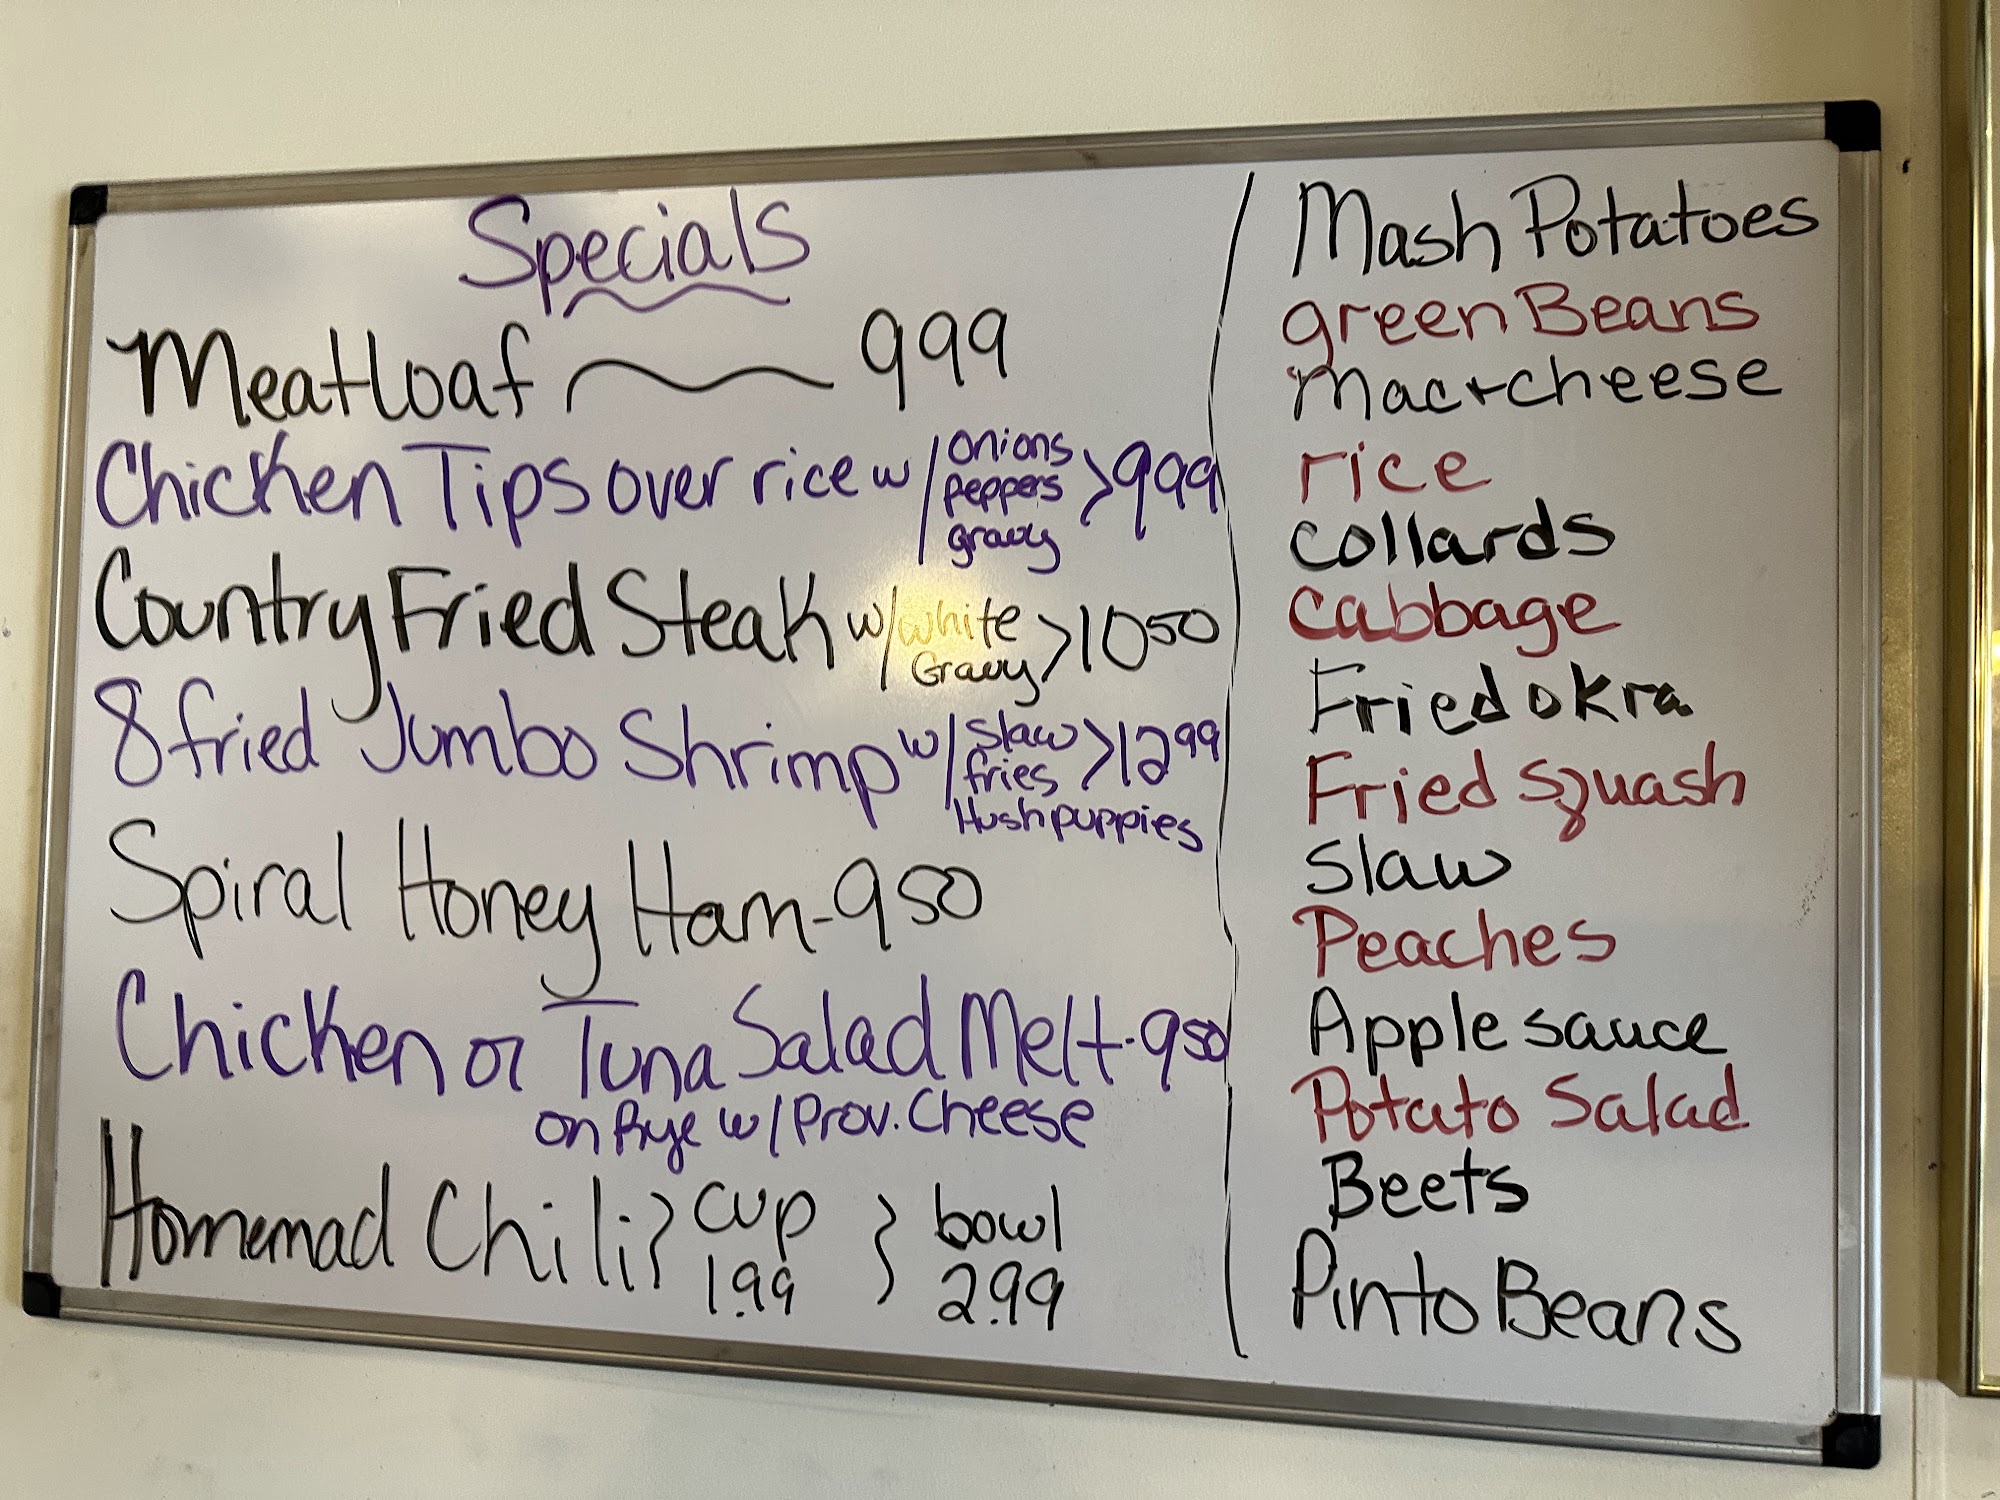 Specials
Meatloaf 999
Chicken Tips over rice w/ onions peppers gravy > 999
Country Fried Steak w/ white Gravy > 1050
8 fried Jumbo Shrimp w/ slaw fries Hushpuppies > 1299
Spiral Honey Ham - 950
Chicken or Tuna Salad Melt - 950
on Rye w/ Prov. Cheese
Homemad Chili } cup 1.99 } bowl 2.99
Mash Potatoes
green Beans
mac + cheese
rice
collards
cabbage
Fried okra
Fried squash
slaw
Peaches
Apple sauce
Potato Salad
Beets
Pinto Beans